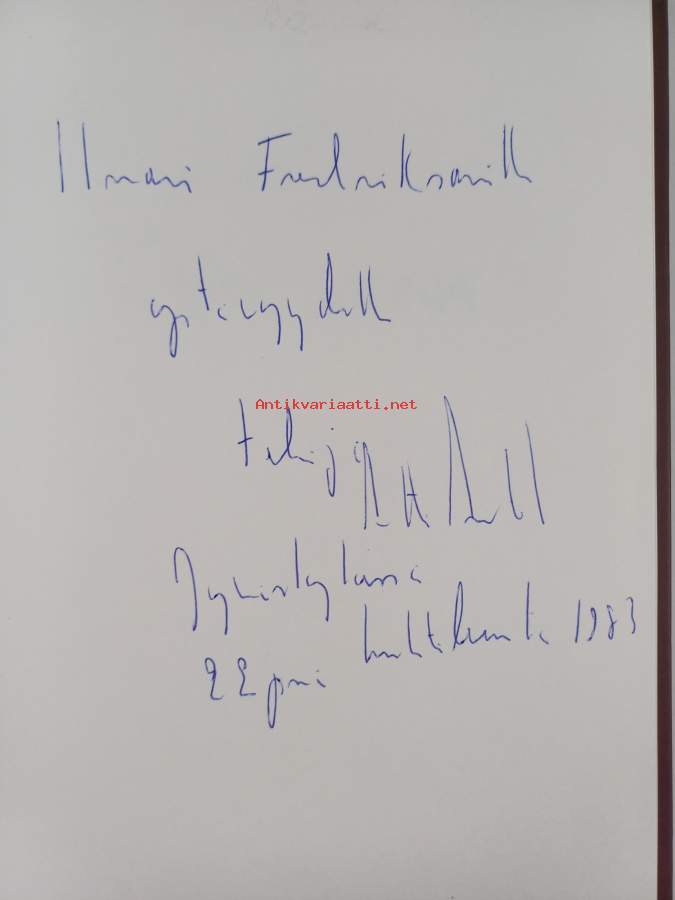 Ilmari Fredriksonille
ystävyydellä
Antikvariaatti.net
tekijä
Jyväskylässä
22 pnä huhtikuuta 1983